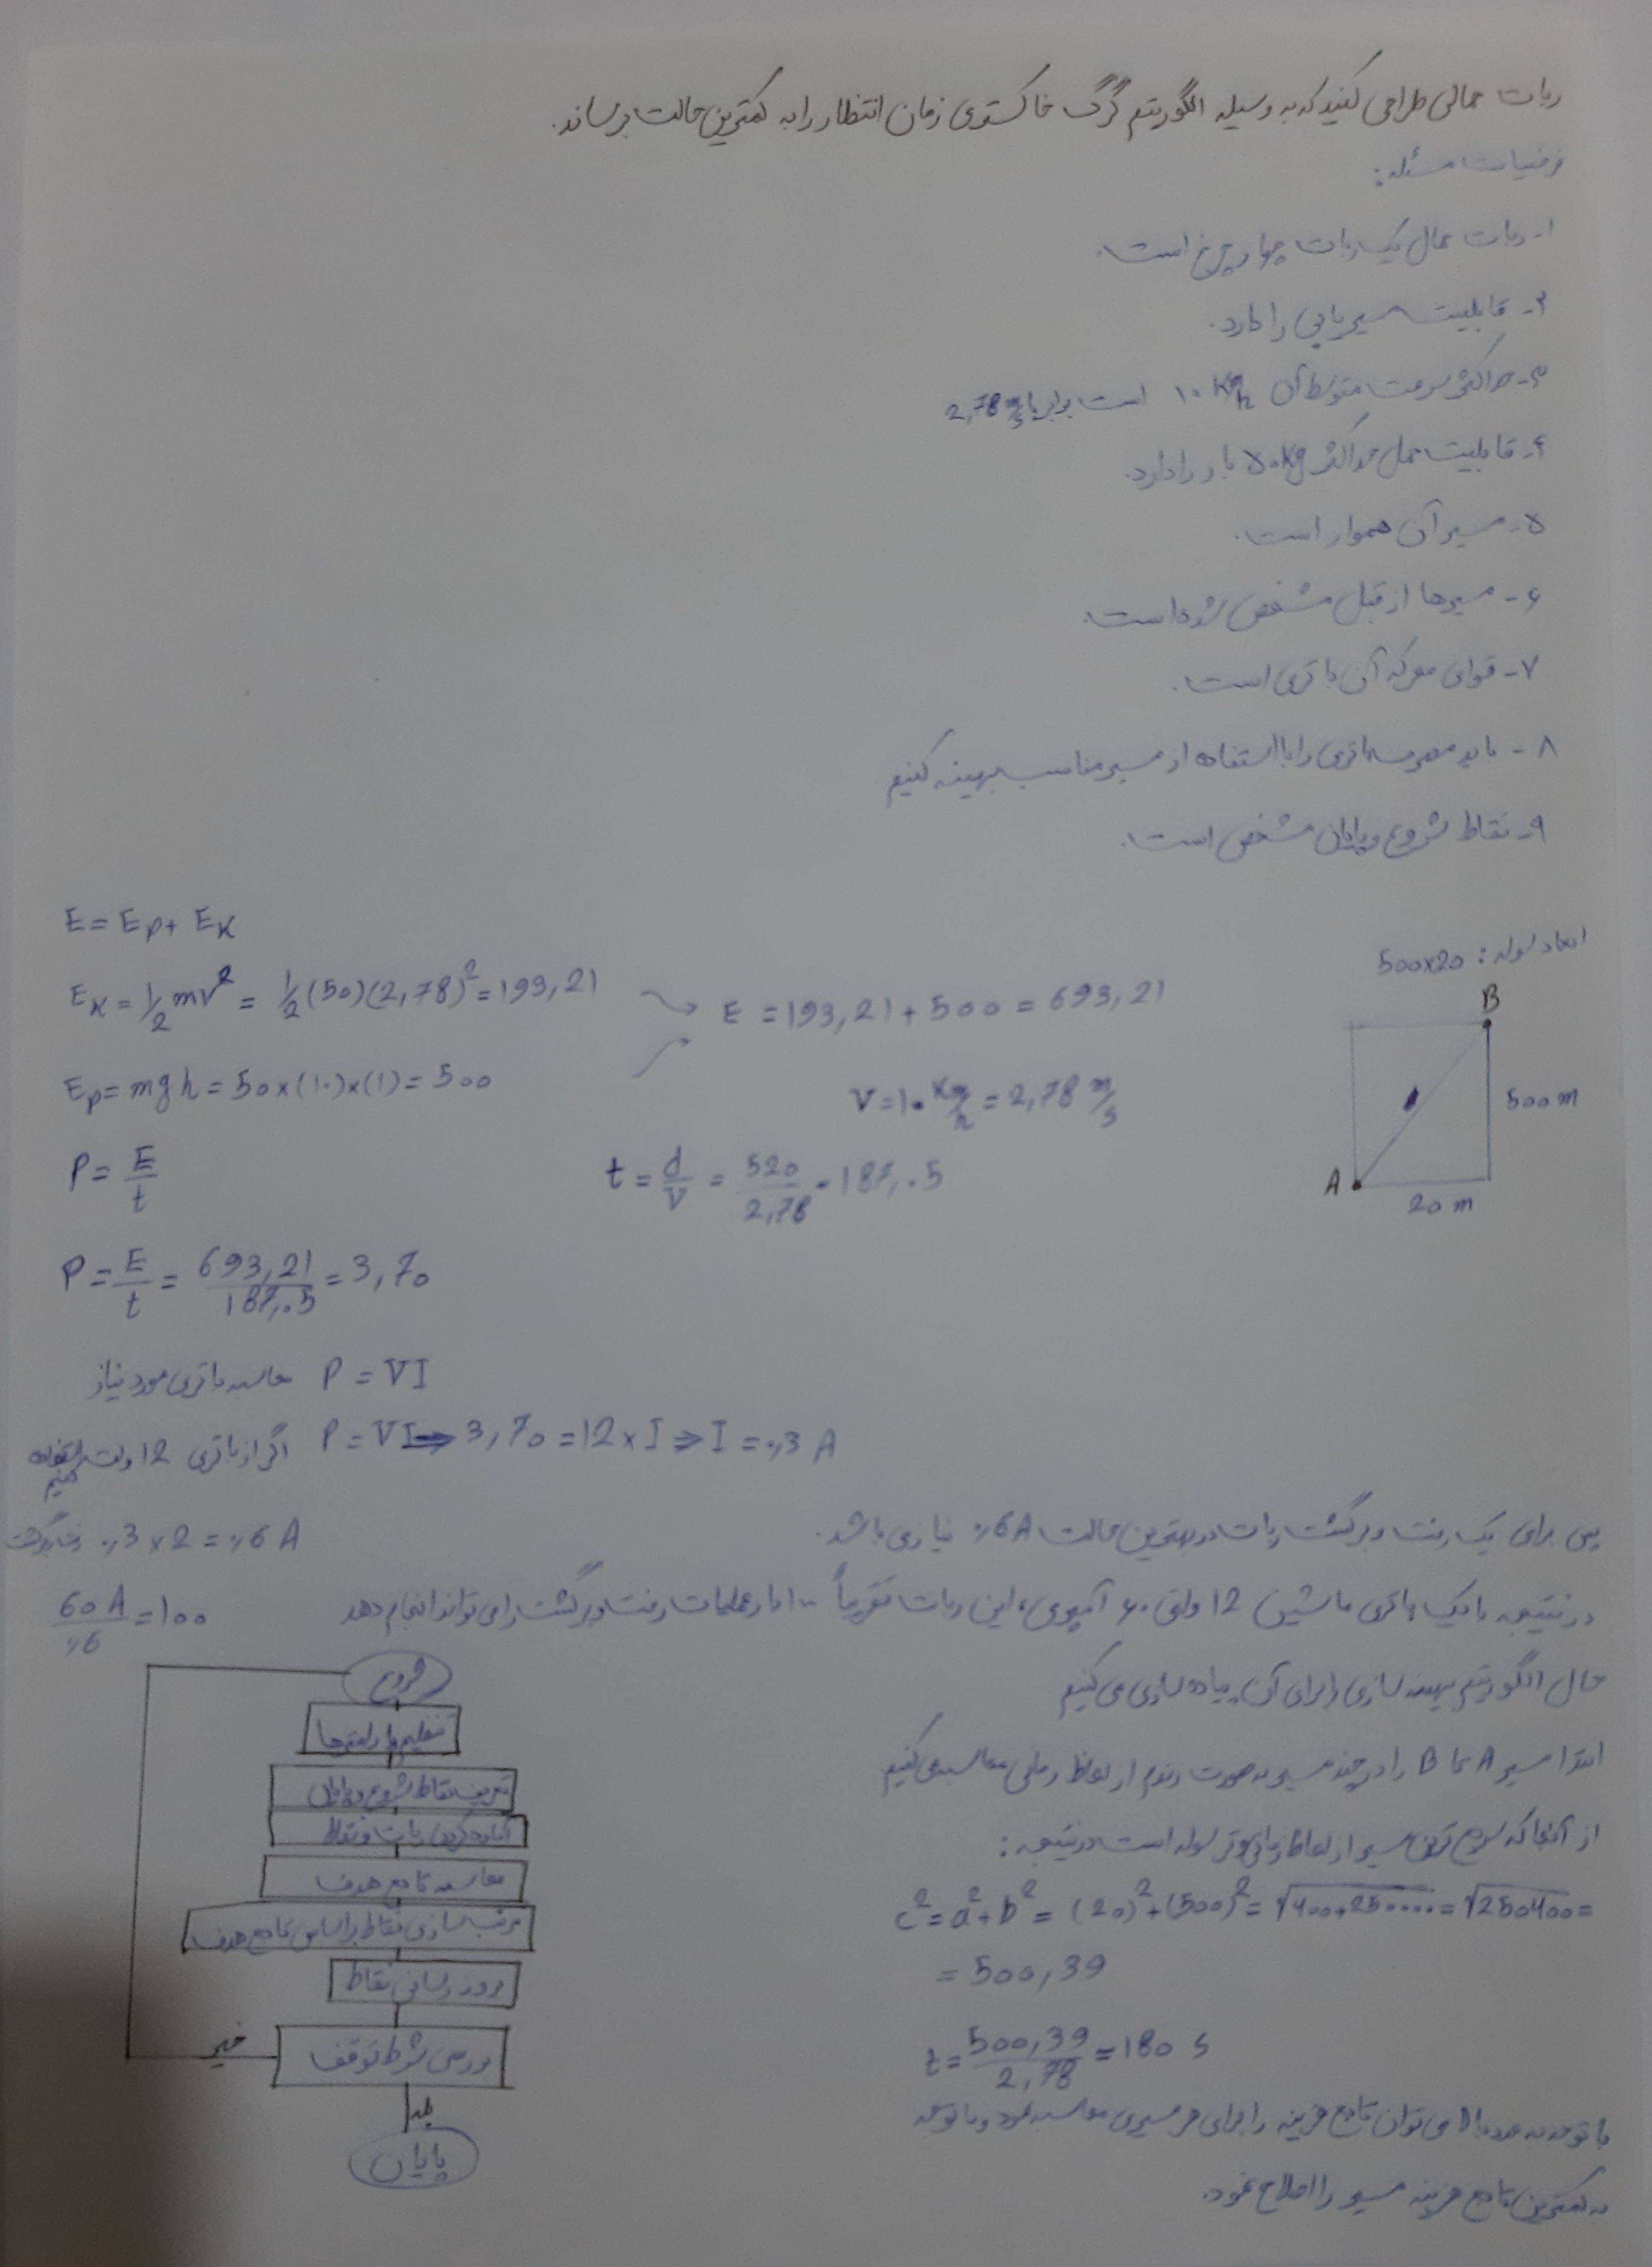 ربات حمالی طراحی کنید که به وسیله الگوریتم گرگ خاکستری زمان انتظار را به کمترین حالت برساند.
فرضیات مسئله:
۱- ربات حمال یک ربات چهار چرخ است.
۲- قابلیت مسیریابی را دارد.
۳- حداکثر سرعت متوسط آن ۱۰ Km/h است برابر با 2,78 m/s
۴- قابلیت حمل حداکثر ۵۰Kg بار را دارد.
۵- مسیر آن هموار است.
۶- مسیرها از قبل مشخص شده است.
۷- قوای محرکه آن باتری است.
۸- باید مصرف باتری را با استفاده از مسیر مناسب بهینه کنیم
۹- نقاط شروع و پایان مشخص است.
ابعاد لوله: 500x20
B
500 m
A
20 m
E = Ep + EK
EK = 1/2 mv² = 1/2 (50)(2,78)² = 193,21
E = 193,21 + 500 = 693,21
Ep = mgh = 50x(1۰)x(1) = 500
V = 1۰ Km/h = 2,78 m/s
P = E/t
t = d/V = 520/2,78 = 187,۰5
P = E/t = 693,21/187,۰5 = 3,70
محاسبه باتری مورد نیاز P = VI
اگر از باتری 12 ولت استفاده کنیم P = VI ⇒ 3,70 = 12 x I ⇒ I = ۰,3 A
پس برای یک رفت و برگشت ربات در بهترین حالت ۰,6A نیاز می باشد.
رفت و برگشت ۰,3 x 2 = ۰,6 A
در نتیجه با یک باتری ماشین 12 ولتی ۶۰ آمپری، این ربات تقریباً ۱۰۰ بار عملیات رفت و برگشت را می تواند انجام دهد
60 A/۰,6 = 100
حال الگوریتم بهینه سازی را برای آن پیاده سازی می کنیم
ابتدا مسیر A تا B را در چند مسیر به صورت رندم از لحاظ زمانی محاسبه می کنیم
از آنجا که سریع ترین مسیر از لحاظ زمانی وتر لوله است در نتیجه:
c² = a² + b² = (20)² + (500)² = √400+250000 = √250400 =
= 500,39
t = 500,39/2,78 = 180 s
با توجه به عدد بالا می توان تابع هزینه را برای هر مسیری محاسبه نمود و با توجه
به کمترین تابع هزینه مسیر را اصلاح نمود.
شروع
تنظیم پارامترها
تعریف نقاط شروع و پایان
آماده کردن ربات و نقاط
محاسبه تابع هدف
مرتب سازی نقاط بر اساس تابع هدف
بروز رسانی نقاط
بررسی شرط توقف
خیر
بله
پایان